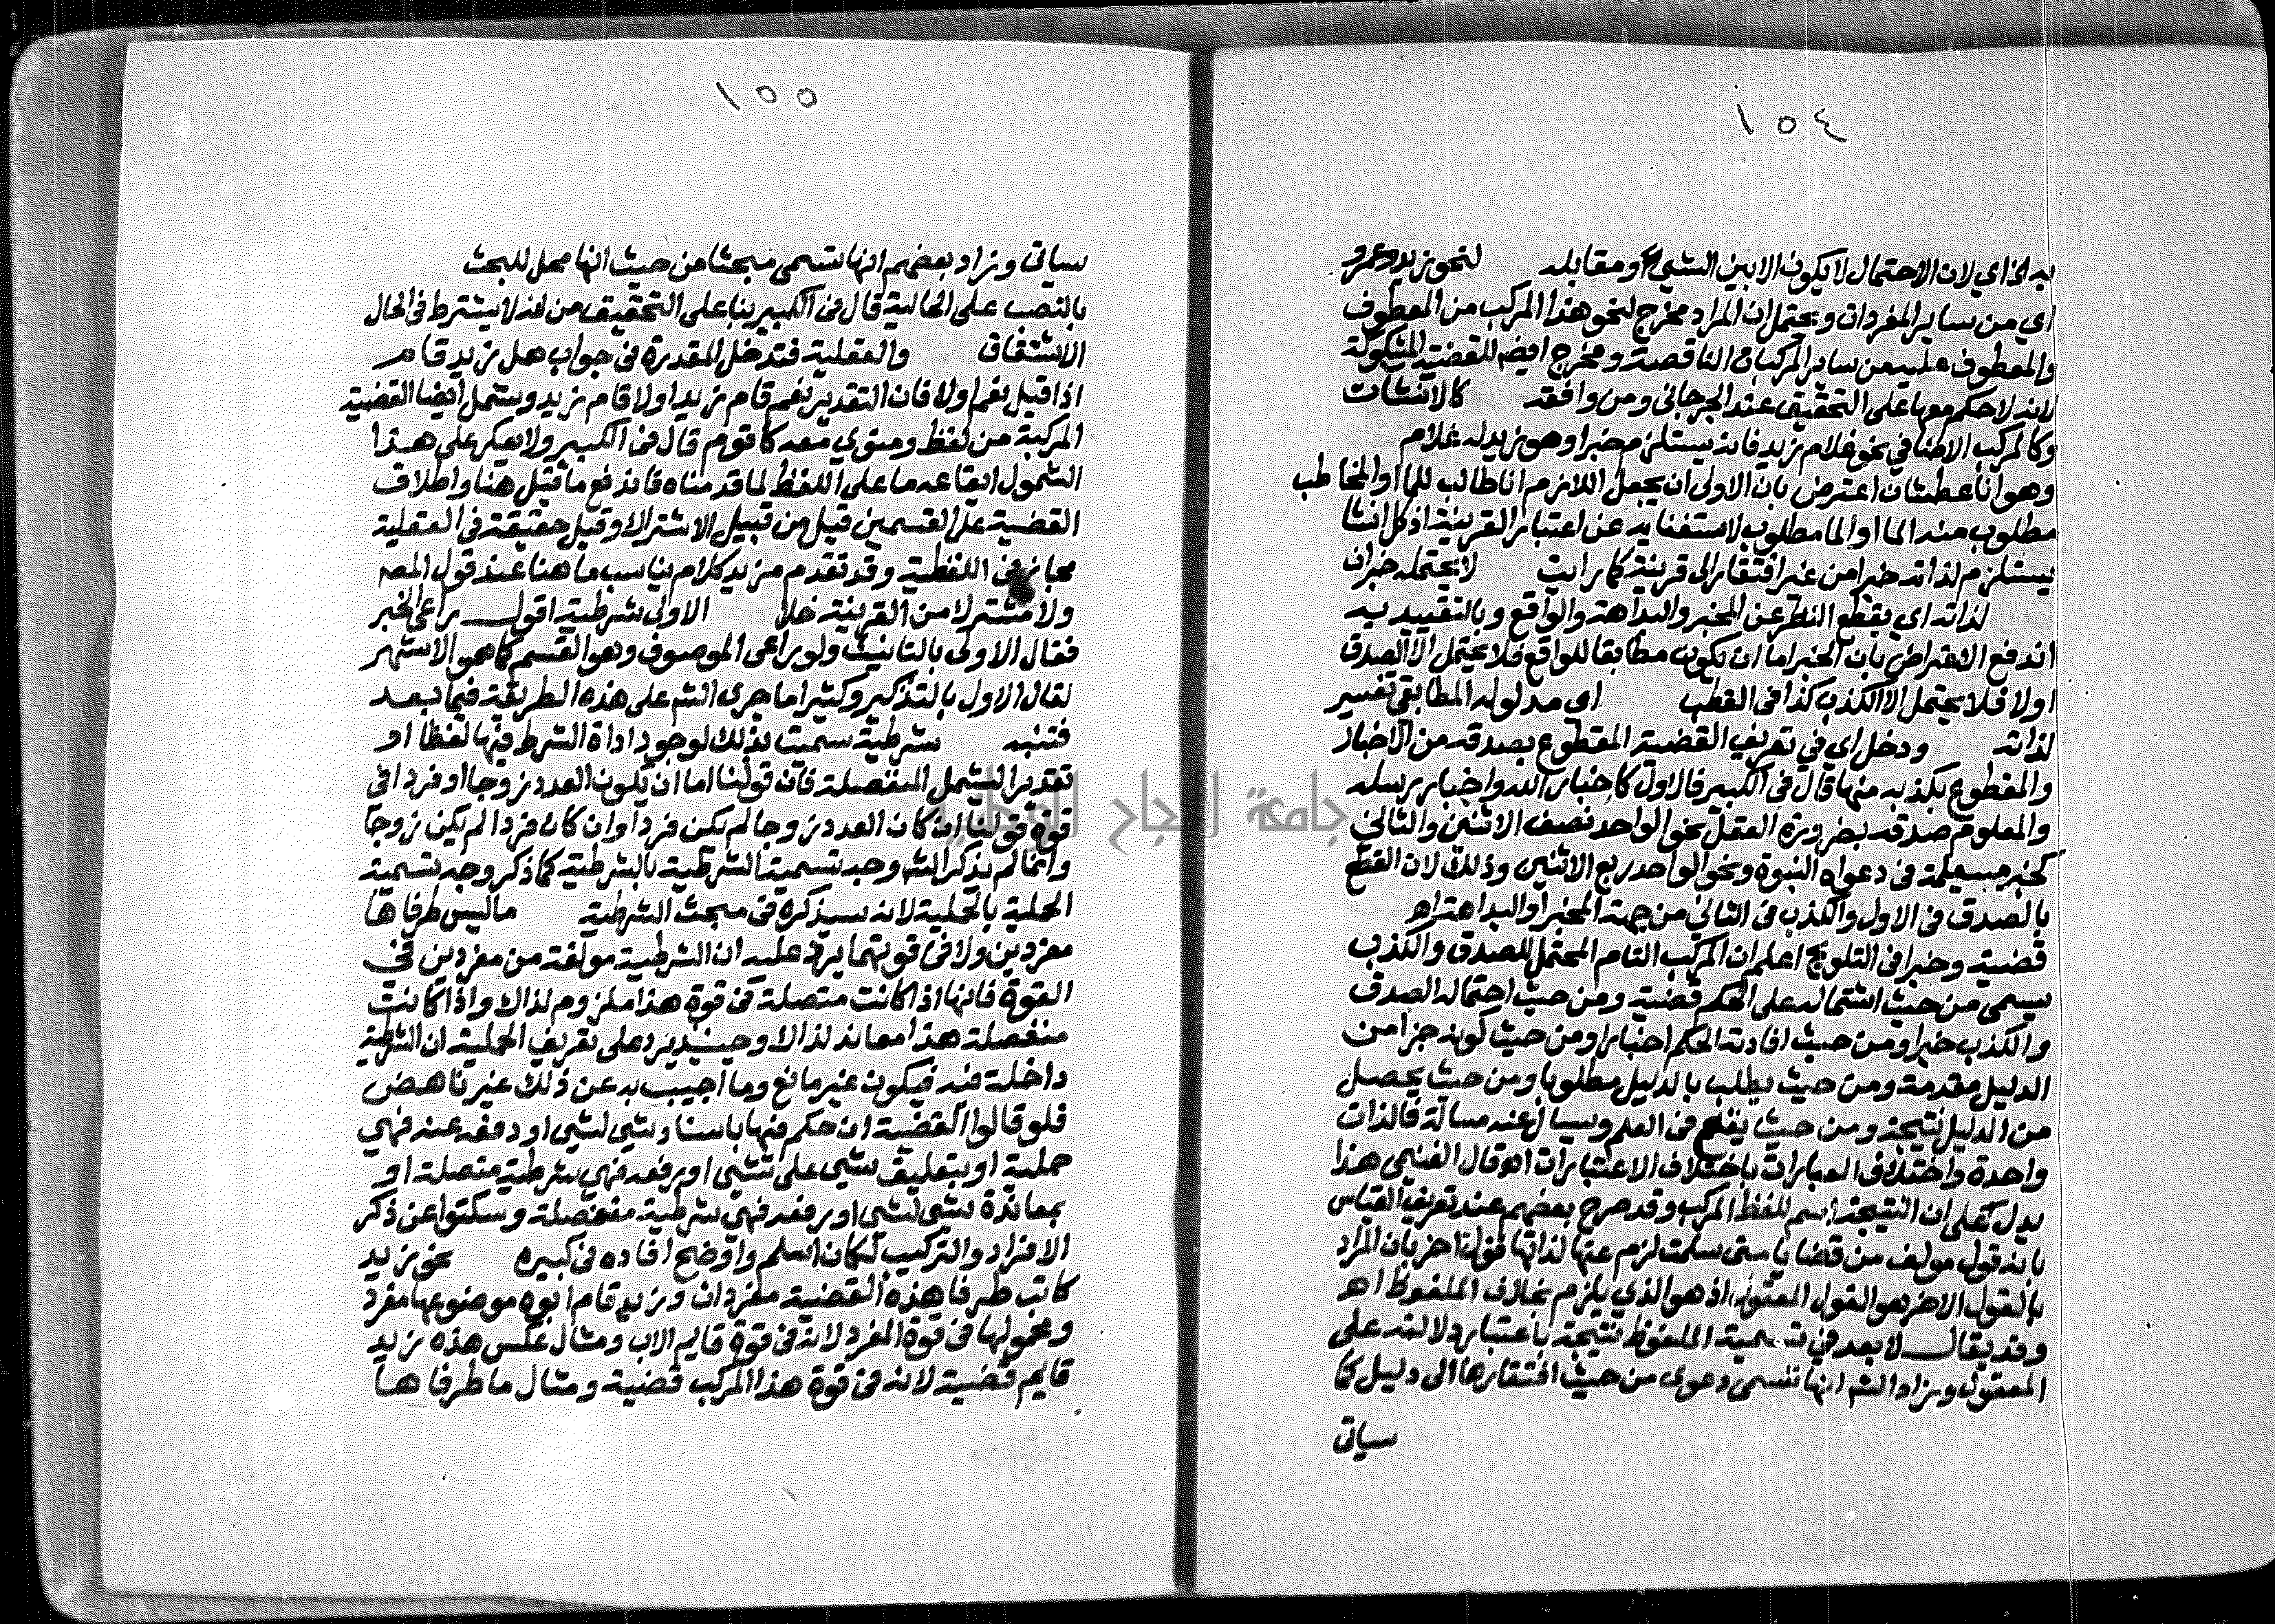 ١٥٤
به الخ اي لان الاحتمال لا يكون الا بين الشيء ومقابله لنحو زيد وعمرو
اي من ساير المفردات ويحتمل ان المراد مخرج لنحو هذا المركب من المعطوف
والمعطوف عليه من ساير المركبات الناقصة ومخرج ايضم للقضية المشكوكة
لانه لا حكم معها على التحقيق عند الجرجاني ومن وافقه كالانشات
وكالمركب الاضافي نحو غلام زيد فانه يستلزم خبرا وهو زيد له غلام
وهو انا عطشان اعترض بان الاولى ان يجعل اللازم انا طالب للماء او المخاطب
مطلوب منه الماء او الما مطلوب لاستغنايه عن اعتبار القرينة اذ كل انشا
يستلزم لذاته خبرا من غير افتقار الى قرينة كما رايت لا يحتمله خبران
لذاته اي بقطع النظر عن المخبر والبداهة والواقع وبالتقييد به
اندفع الاعتراض بان الخبر اما ان يكون مطابقا للواقع فلا يحتمل الا الصدق
اولا فلا يحتمل الا الكذب كذا في القطب اى مدلوله المطابقي تفسير
لذاته ودخل اي في تعريف القضية المقطوع بصدقه من الاخبار
والمقطوع بكذبه منها قال في الكبير فالاول كاخبار الله واخبار رسله
والمعلوم صدقه بضرورة العقل نحو الواحد نصف الاثنين والثاني
كخبر مسيلمة في دعواه النبوة ونحو الواحد ربع الاثنين وذلك لان القطع
بالصدق في الاول والكذب في الثاني من جهة المخبر او البداهة اهر
قضية وخبرا في التلويح اعلم ان المركب التام المحتمل للصدق والكذب
يسمى من حيث اشتماله على الحكم قضية ومن حيث احتماله الصدق
والكذب خبرا ومن حيث افادته الحكم اخبارا ومن حيث كونه جزا من
الدليل مقدمة ومن حيث يطلب بالدليل مطلوبا ومن حيث يحصل
من الدليل نتيجة ومن حيث يقع في العلم ويسال عنه مسالة فالذات
واحدة واختلاف العبارات باختلاف الاعتبارات اه وقال الغنيمي هذا
يدل على ان النتيجة اسم للفظ المركب وقد صرح بعضهم عند تعريف القياس
بانه قول مولف من قضايا متى سلمت لزم عنها لذاتها قول اخر بان المراد
بالقول الاخر هو القول المعقول اذ هو الذي يلزم بخلاف الملفوظ اهر
وقد يقال لا بعد في تسمية الملفوظ نتيجة باعتبار دلالته على
المعقول وزاد الشم انها تسمى دعوى من حيث افتقارها الى دليل كما
سياتي
١٥٥
سياتي وزاد بعضهم انها تسمى مبحثا من حيث انها محل للبحث
بالنصب على الحالية قال في الكبير بنا على التحقيق من انه لا يشترط في الحال
الاشتقاق والعقلية فتدخل المقدرة في جواب هل زيد قام
اذا قيل نعم او لا فان التقدير نعم قام زيد او لا قام زيد وشمل ايضا القضية
المركبة من لفظ ومنوي معه كاقوم قال في الكبير ولا يعكر على هذا
الشمول ايقاعه ما على اللفظ لما قدمناه فاندفع ما قيل هنا واطلاق
القضية على القسمين قيل من قبيل الاشتراك وقيل حقيقة في العقلية
مجاز في اللفظية وقد تقدم مزيد كلام يناسب ما هنا عند قول المصـ
ولا مشترك من القرينة خلا الاولى شرطية اقول راعى الخبر
فقال الاولى بالتانيث ولو راعى الموصوف وهو القسم كما هو الاشهر
لقال الاول بالتذكير وكثيرا ما جرى الشم على هذه الطريقة فيما بعد
فتنبه شرطية سميت بذلك لوجود اداة الشرط فيها لفظا او
تقديرا ليشمل المنفصلة فان قولنا اما ان يكون العدد زوجا او فردا في
قوة قولنا ان كان العدد زوجا لم يكن فردا وان كان فردا لم يكن زوجا
وانما لم يذكر الشم وجه تسمية الشرطية بالشرطية كما ذكر وجه تسمية
الحملية بالحملية لانه سيذكره في مبحث الشرطية ما ليس طرفاها
مفردين ولا في قوتهما يرد عليه ان الشرطية مولفة من مفردين في
القوة فانها اذا كانت متصلة في قوة هذا ملزوم لذاك واذا كانت
منفصلة هذا معاند لذاك وحينيذ يرد على تعريف الحملية ان الشرطية
داخلة فيه فيكون غير مانع وما اجيب به عن ذلك غير ناهض
فلو قالوا القضية ان حكم فيها باسناد شي لشي او دفعه عنه فهي
حملية او بتعليق شي على شي او رفعه فهي شرطية متصلة او
بمعاندة شي لشي او رفعه فهي شرطية منفصلة وسكتوا عن ذكر
الافراد والتركيب لكان اسلم واوضح افاده في كبيره نحو زيد
كاتب طرفا هذه القضية مفردان وزيد قام ابوه موضوعها مفرد
ومحمولها في قوة المفرد لانه في قوة قايم الاب ومثال عكس هذه زيد
قايم قضية لانه في قوة هذا المركب قضية ومثال ما طرفاها
جامعة النجاح الوطنية